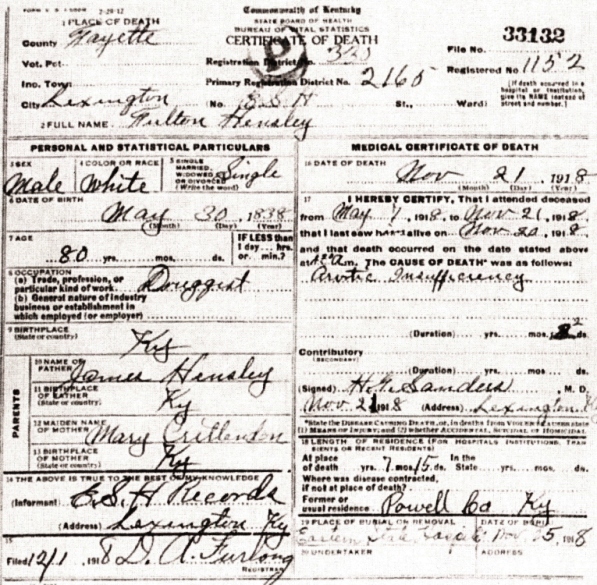 FORM V. S. 2-29-12
Commonwealth of Kentucky
STATE BOARD OF HEALTH
BUREAU OF VITAL STATISTICS
CERTIFICATE OF DEATH
1 PLACE OF DEATH
County Fayette
Vot. Pct.
Inc. Town
City Lexington
Registration District No.
Primary Registration District No. 2165
(No. E.S.H St., Ward)
File No. 33132
Registered No. 1152
(If death occurred in a hospital or institution, give its NAME instead of street and number.)
2 FULL NAME Fulton Hensley
PERSONAL AND STATISTICAL PARTICULARS
3 SEX Male
4 COLOR OR RACE White
5 SINGLE, MARRIED, WIDOWED OR DIVORCED (Write the word) Single
6 DATE OF BIRTH
May 30, 1838
(Month) (Day) (Year)
7 AGE
80 yrs. mos. ds.
IF LESS than 1 day... hrs. or min.?
8 OCCUPATION
(a) Trade, profession, or particular kind of work. Druggist
(b) General nature of industry business or establishment in which employed (or employer)
9 BIRTHPLACE
(State or country) Ky
PARENTS
10 NAME OF FATHER James Hensley
11 BIRTHPLACE OF FATHER
(State or country) Ky
12 MAIDEN NAME OF MOTHER Mary Crittendon
13 BIRTHPLACE OF MOTHER
(State or country) Ky
14 THE ABOVE IS TRUE TO THE BEST OF MY KNOWLEDGE
(Informant) E.S.H Records
(Address) Lexington Ky
15
Filed 12/1 1918 D. A. Furlong
REGISTRAR
MEDICAL CERTIFICATE OF DEATH
16 DATE OF DEATH
Nov 21, 1918
(Month) (Day) (Year)
17 I HEREBY CERTIFY, That I attended deceased
from May 7, 1918, to Nov 21, 1918,
that I last saw h alive on Nov 20, 1918,
and that death occurred on the date stated above
at m. The CAUSE OF DEATH was as follows:
Arotic Insufficiency
(Duration) yrs. mos. ds.
Contributory
(SECONDARY)
(Duration) yrs. mos. ds.
(Signed) H. G. Sanders, M. D.
Nov 21 1918 (Address) Lexington, Ky
State the DISEASE CAUSING DEATH, or, in deaths from VIOLENT CAUSES state (1) MEANS OF INJURY; and (2) whether ACCIDENTAL, SUICIDAL or HOMICIDAL.
18 LENGTH OF RESIDENCE (FOR HOSPITALS, INSTITUTIONS, TRANSIENTS OR RECENT RESIDENTS)
At place of death yrs. 7 mos. 15 ds. In the State yrs. mos. ds.
Where was disease contracted, if not at place of death?
Former or usual residence Powell Co Ky
19 PLACE OF BURIAL OR REMOVAL
DATE OF BURIAL
Eastern State Hospital Nov. 25, 1918
20 UNDERTAKER
ADDRESS